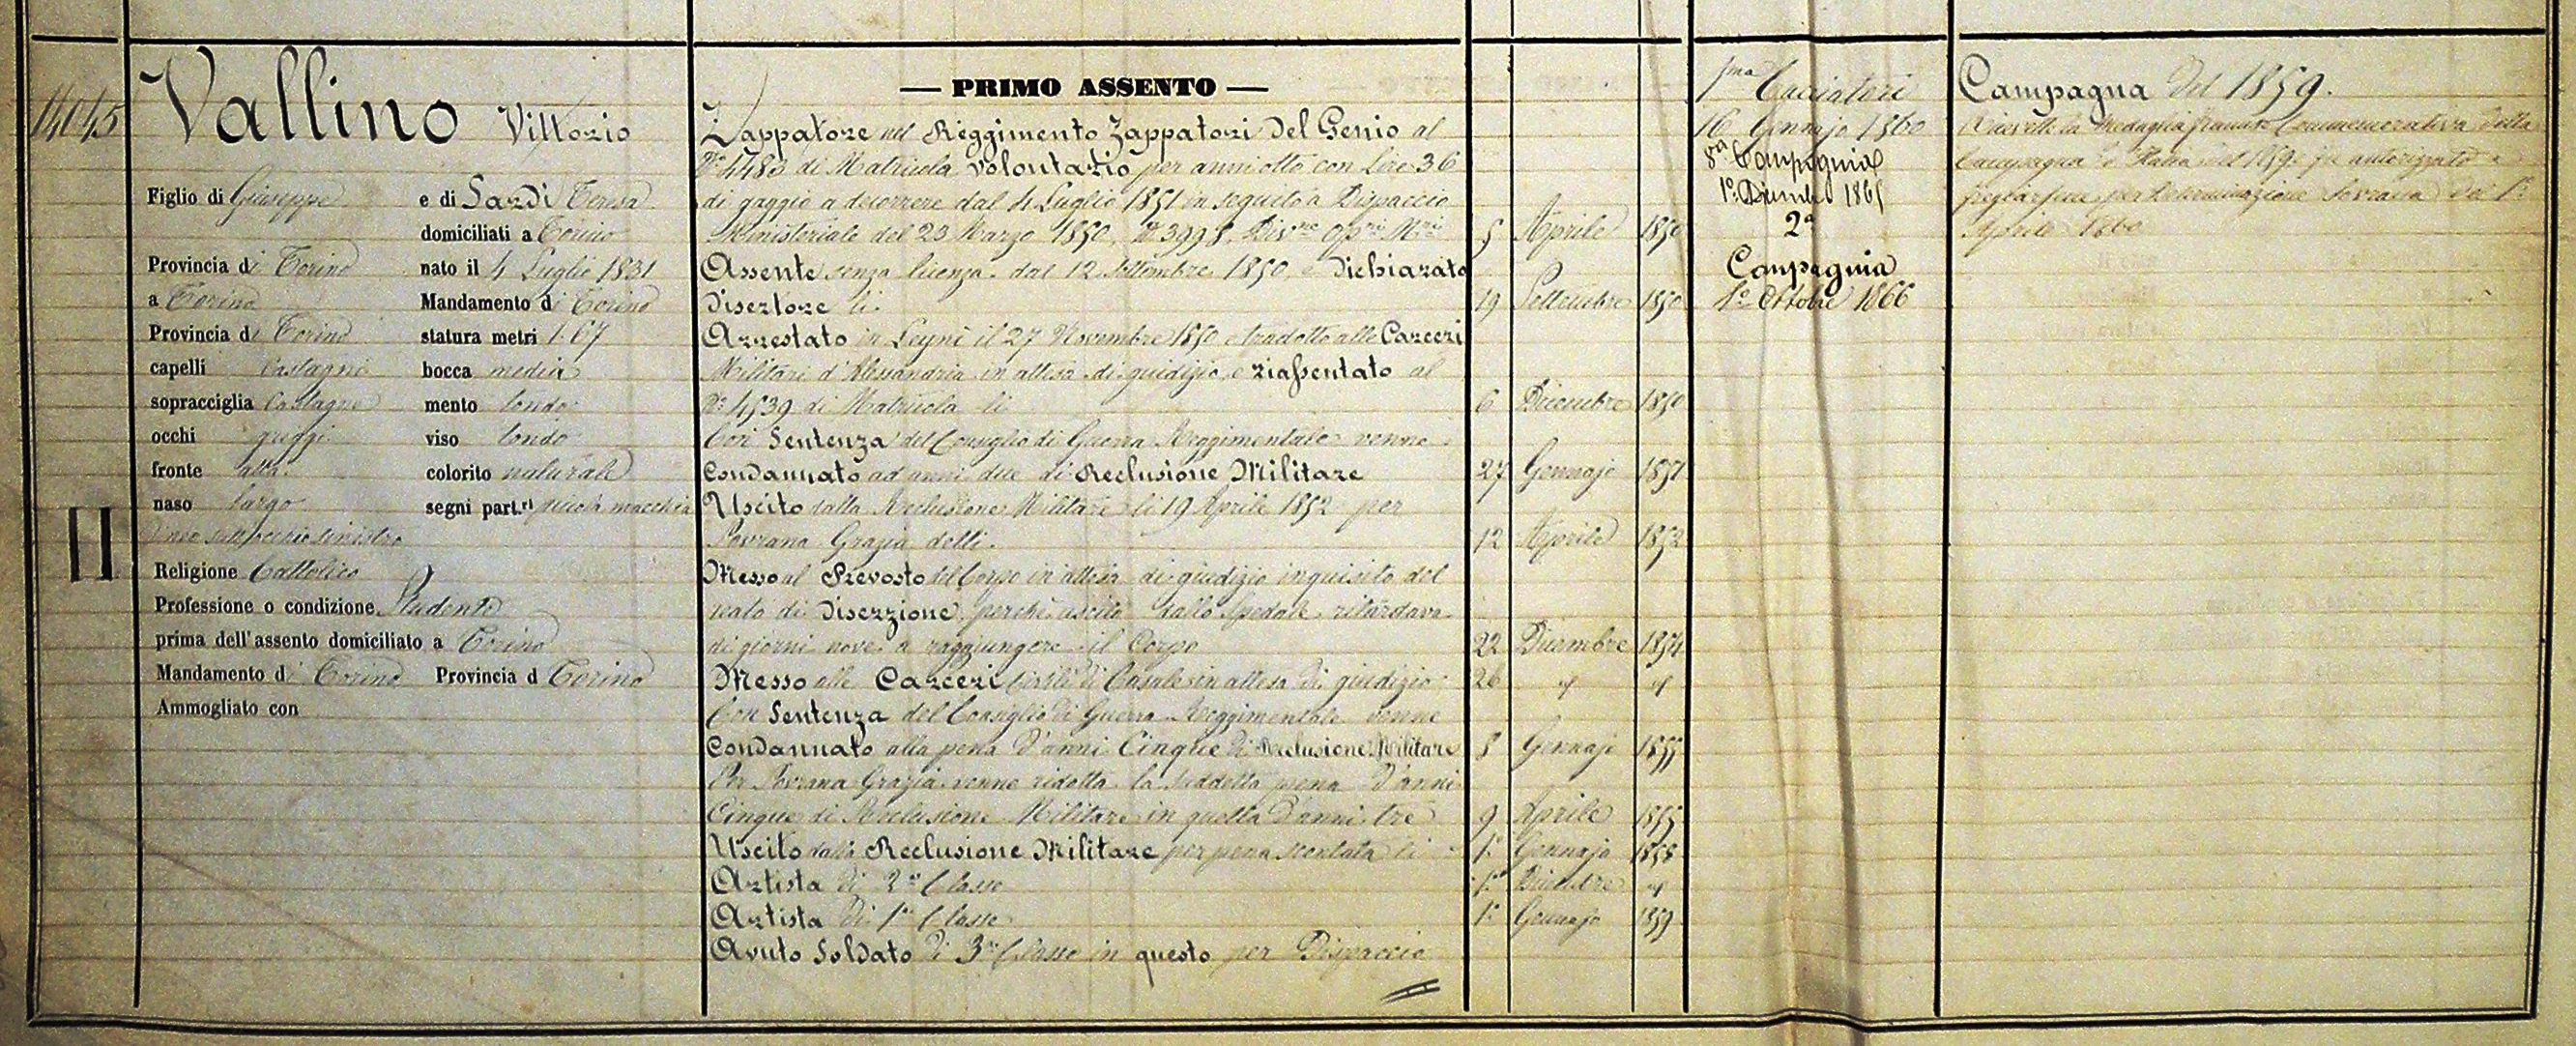 14045
Vallino Vittorio
Figlio di Giuseppe e di Sardi Teresa
domiciliati a Torino
Provincia di Torino nato il 4 Luglio 1831
a Torino Mandamento di Torino
Provincia di Torino statura metri 1.67
capelli Castagni bocca media
sopracciglia Castagne mento tondo
occhi griggi viso tondo
fronte alta colorito naturale
naso largo segni part.ri piccola macchia
sott'occhio sinistro
Religione Cattolica
Professione o condizione Studente
prima dell'assento domiciliato a Torino
Mandamento di Torino Provincia d Torino
Ammogliato con
II
— PRIMO ASSENTO —
Zappatore nel Reggimento Zappatori del Genio al
N° 4483 di Matricola volontario per anni otto con Lire 36
di gaggio a decorrere dal 4 Luglio 1851 in seguito a Dispaccio
Ministeriale del 23 Marzo 1850, N° 3998, Div.ne Op.ni M.ri 5 Aprile 1850
Assente senza licenza dal 12 Settembre 1850, e dichiarato
Disertore li 19 Settembre 1850
Arrestato in Leyni il 27 Novembre 1850 e tradotto alle Carceri
Militari d'Alessandria in attesa di giudizio, e riassentato al
N° 4539 di Matricola li 6 Dicembre 1850
Con Sentenza del Consiglio di Guerra Reggimentale venne
Condannato ad anni due di Reclusione Militare 27 Gennajo 1851
Uscito dalla Reclusione Militare li 19 Aprile 1852 per
Sovrana Grazia delli 12 Aprile 1852
Messo al Prevosto del Corpo in attesa di giudizio inquisito del
reato di Diserzione, perchè uscito dallo Spedale ritardava
di giorni nove a raggiungere il Corpo 22 Dicembre 1854
Messo alle Carceri Civili di Casale in attesa di giudizio 26 " "
Con Sentenza del Consiglio di Guerra Reggimentale venne
Condannato alla pena d'anni Cinque di Reclusione Militare 8 Gennajo 1855
Per Sovrana Grazia venne ridotta la suddetta pena d'anni
Cinque di Reclusione Militare in quella d'anni tre 9 Aprile 1855
Uscito dalla Reclusione Militare per pena scontata li 1° Gennajo 1858
Artista di 2a Classe 1° Dicembre "
Artista di 1a Classe 1° Gennajo 1859
Avuto Soldato di 3a Classe in questo per Dispaccio
1ma Cacciatori
16 Gennajo 1860
8a Compagnia
1° Dicembre 1865
2a
Compagnia
1° Ottobre 1866
Campagna del 1859.
Ricevette la Medaglia francese Commemorativa della
Campagna d'Italia del 1859 fu autorizzato a
fregiarsene per Determinazione Sovrana del 1°
Aprile 1860